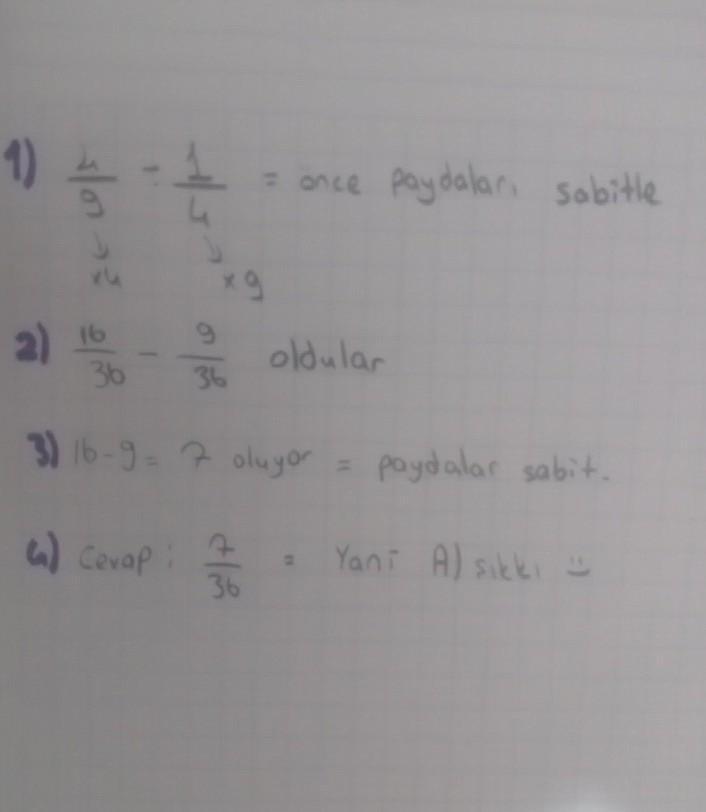 1) 4/9 - 1/4 = önce paydaları sabitle
x4 x9
2) 16/36 - 9/36 oldular
3) 16-9= 7 oluyor = paydalar sabit.
4) Cevap: 7/36 = Yani A) şıkkı :)